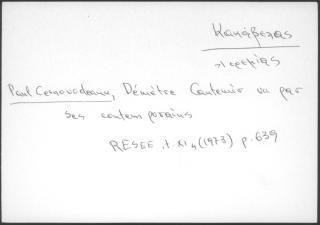 Κακάβελας
Ιερεμίας
Paul Cernovodeanu, Démètre Cantemir vu par
ses contemporains
RESEE, t. XI₄ (1973) p. 639